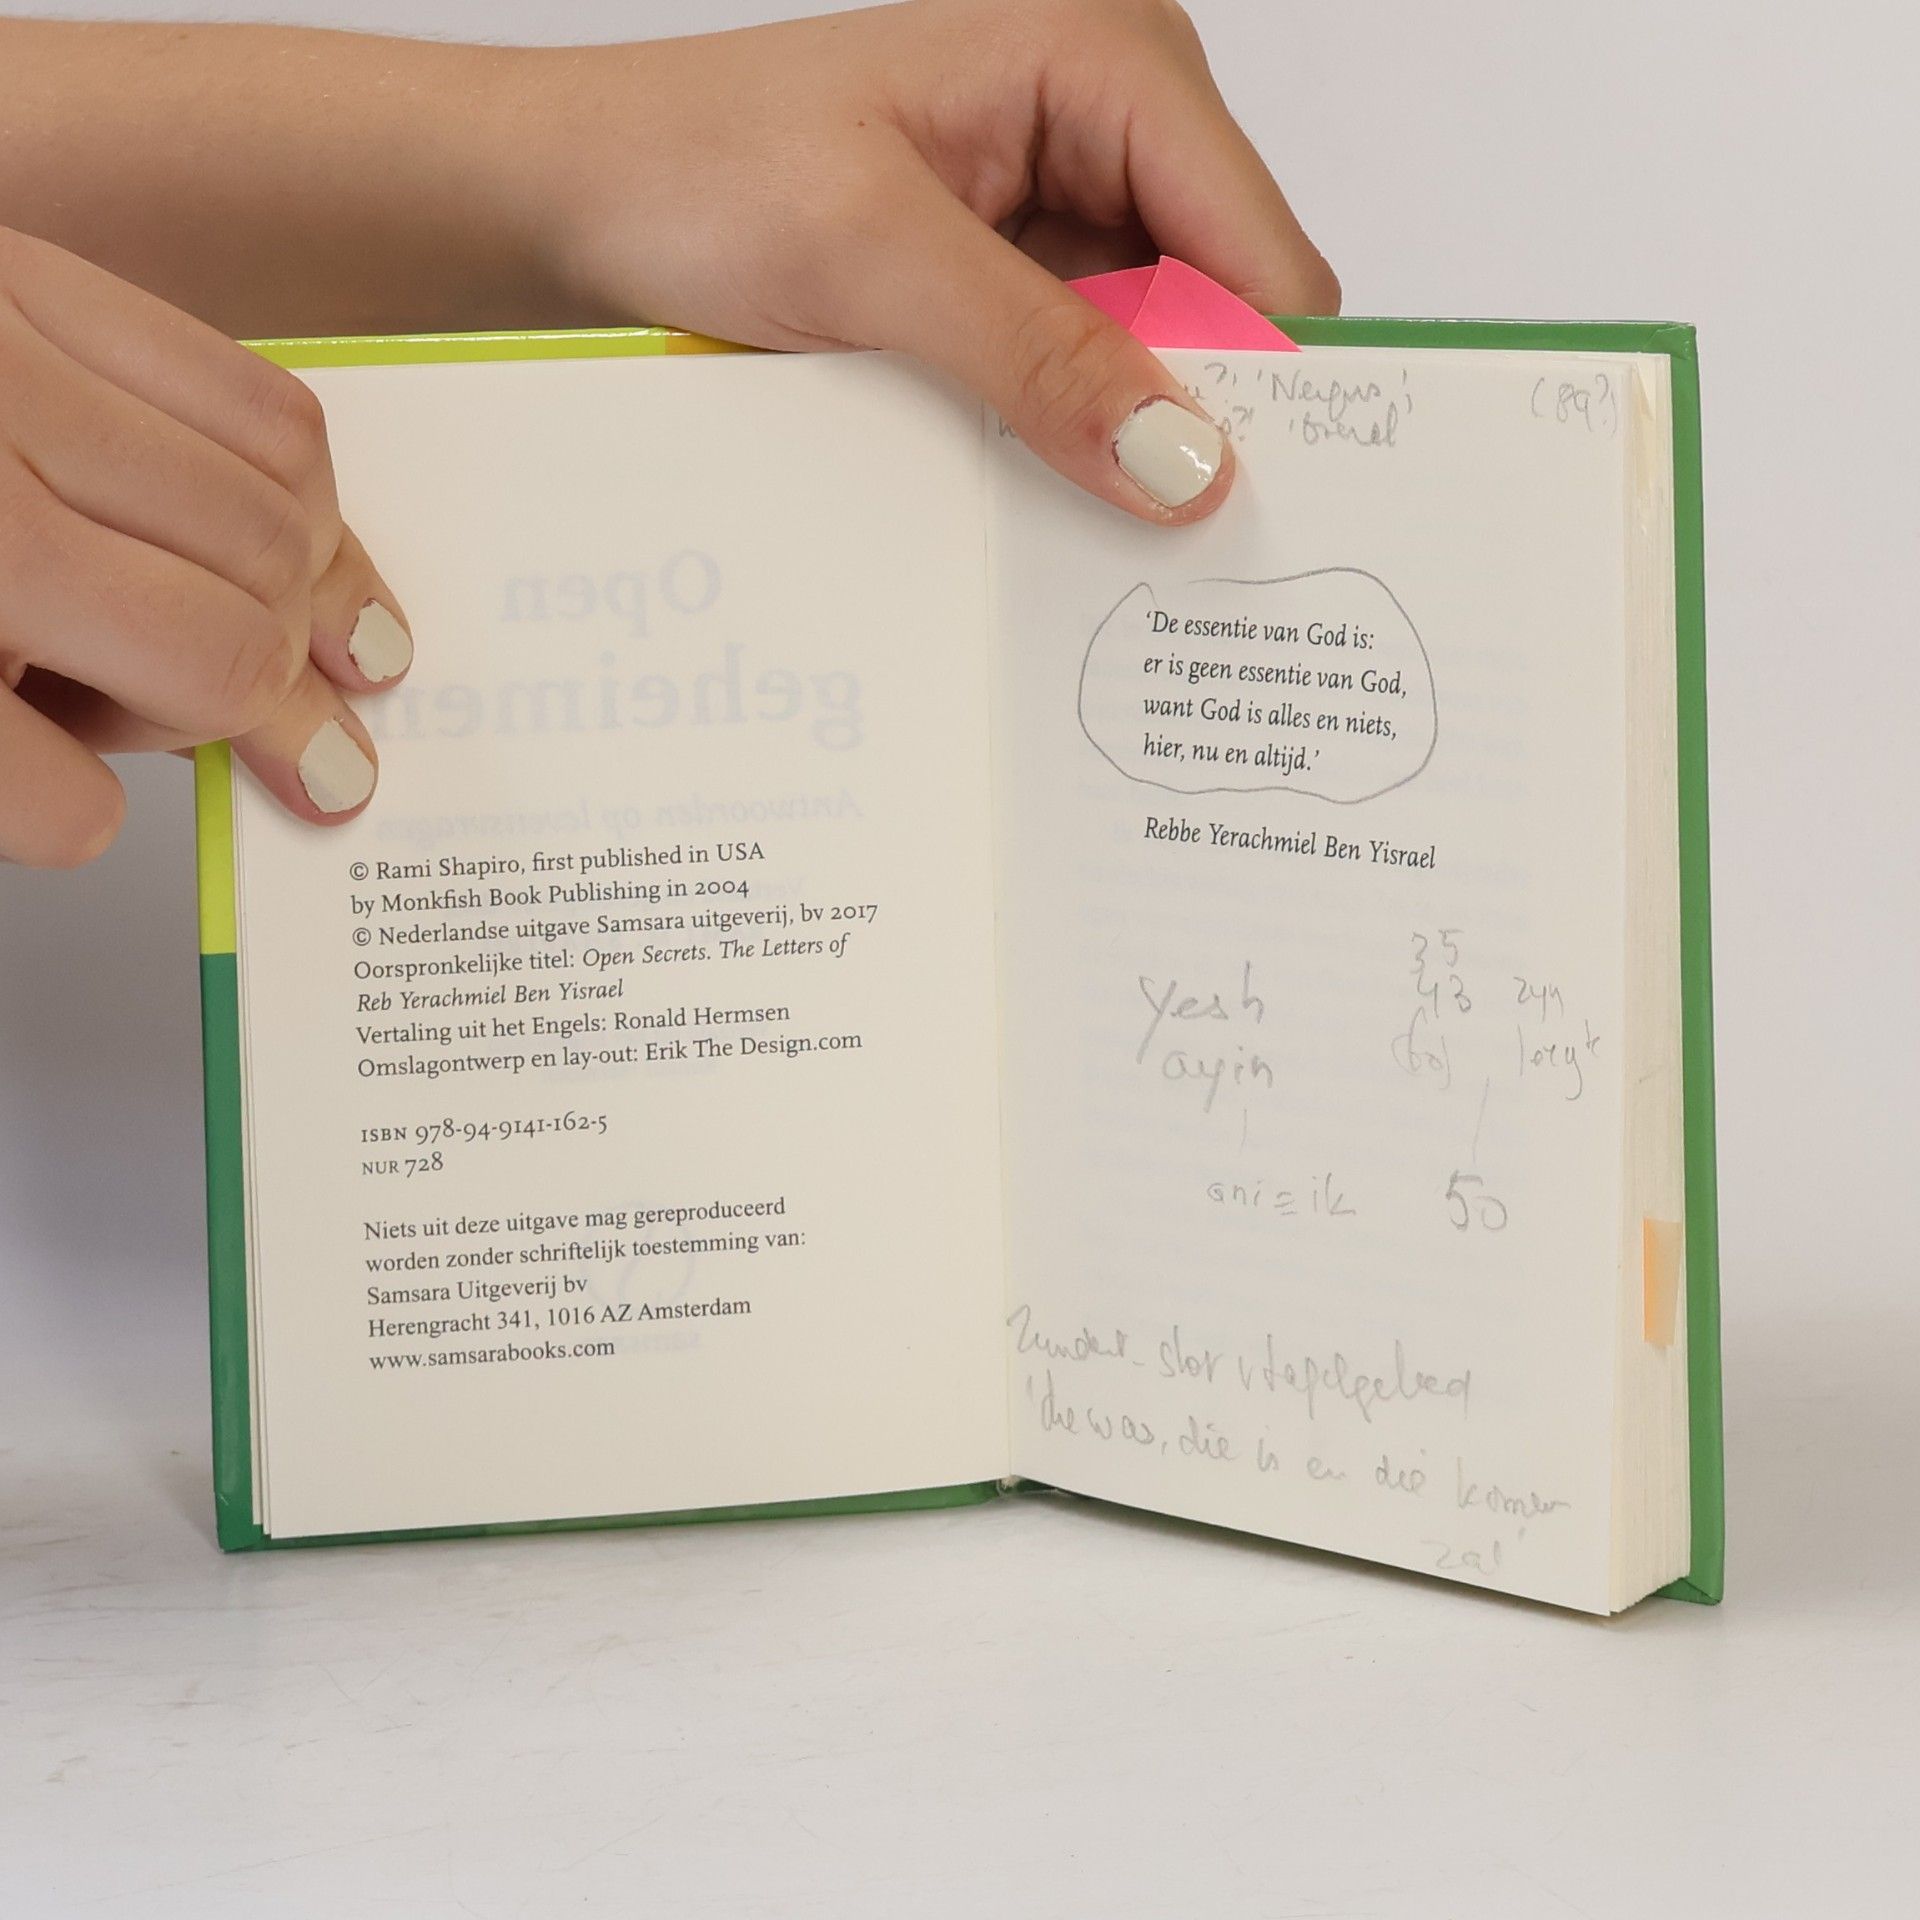 Open
geheimen
Antwoorden op levensvragen
© Rami Shapiro, first published in USA
by Monkfish Book Publishing in 2004
© Nederlandse uitgave Samsara uitgeverij, bv 2017
Oorspronkelijke titel: Open Secrets. The Letters of
Reb Yerachmiel Ben Yisrael
Vertaling uit het Engels: Ronald Hermsen
Omslagontwerp en lay-out: Erik The Design.com
ISBN 978-94-9141-162-5
NUR 728
Niets uit deze uitgave mag gereproduceerd
worden zonder schriftelijk toestemming van:
Samsara Uitgeverij bv
Herengracht 341, 1016 AZ Amsterdam
www.samsarabooks.com
(89?)
‘De essentie van God is:
er is geen essentie van God,
want God is alles en niets,
hier, nu en altijd.’
Rebbe Yerachmiel Ben Yisrael
35
yesh 43 zyn
ayin
ani = ik 50
slot tafelgebed
'die was, die is en die komen
zal'